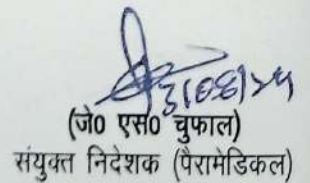 (जे0 एस0 चुफाल)
संयुक्त निदेशक (पैरामेडिकल)